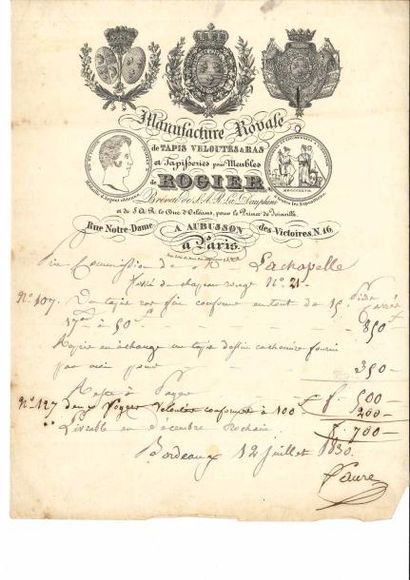 Manufacture Royale
de TAPIS VELOUTÉS & RAS
et Tapisseries pour Meubles
de ROGIER
Breveté de S.A.R. La Dauphine
et de S.A.R. le Duc d'Orléans, pour le Prince de Joinville.
Rue Notre-Dame des Victoires N. 16,
A AUBUSSON
à Paris.
Commission de M Lachapelle
du chapeau rouge N° 21-
N° 107. Un tapis ras fin conforme en tout de 15
à 50 f 850-
Repris en échange un tapis dessin cachemire fourni
par moi pour 350-
Reste à Payer f. 500-
N° 127 deux foyers Veloutés conforme à 100 f 200-
Livrable en décembre prochain f. 700-
Bordeaux 12 juillet 1830.
Faure